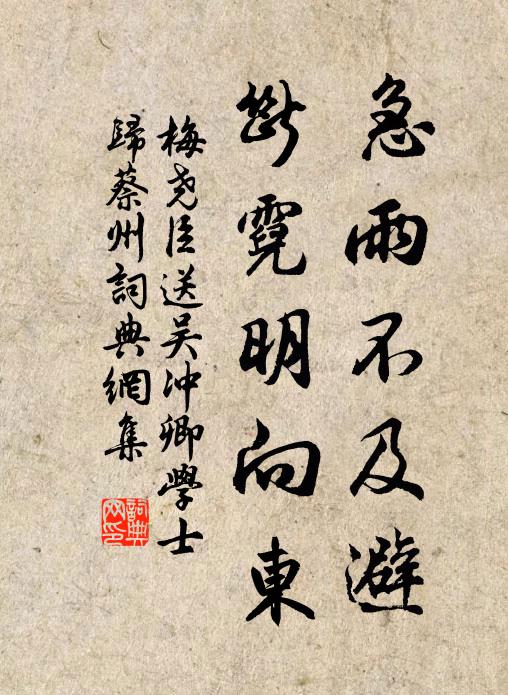 急雨不及避
斷霓明向東
梅尧臣送吴沖卿學士
歸蔡州詞典網集
詞典
网印